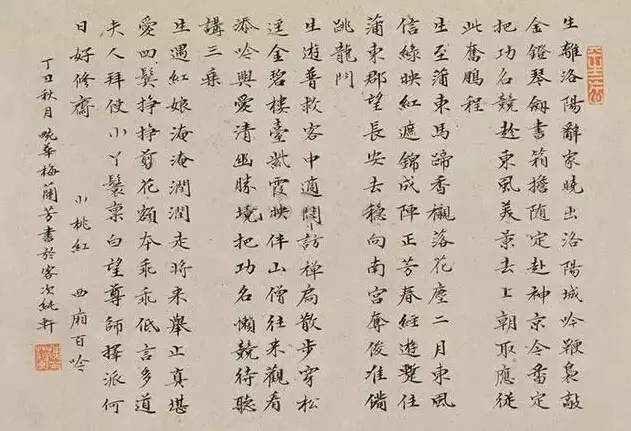 生離洛陽辭家曉出洛陽城吟鞭裊敲
金鐙琴劍書箱擔随定赴神京今番定
把功名競趂東風美景去上朝取應從
此奮鵬程
生至蒲東馬蹄香襯落花塵二月東風
信綠映紅遮錦成陣正芳春經遊蹔住
蒲東郡望長安去穩向南宫奪俊准備
跳龍門
生遊普救客中適閒訪禅扃散步穿松
逕金碧樓臺紫霞映伴山僧往来觀看
添吟興愛清幽勝境把功名懶競待聽
講三乗
生遇紅娘淹淹潤潤走将来舉止真堪
愛四鬂挣挣剪花額本乖乖低言多道
夫人拜使小丫鬟禀白望尊師擇派何
日好修齋 小桃紅 西廂百吟
丁丑秋月畹華梅蘭芳書於客次純軒